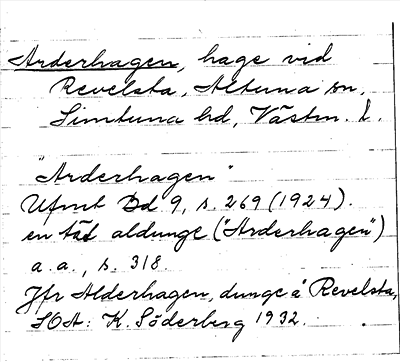 Arderhagen, hage vid
Revelsta, Altuna sn,
Simtuna hd, Västm. l.
"Arderhagen"
Ufmt Bd 9, s. 269 (1924).
en tät aldunge ("Arderhagen")
a.a., s. 318.
Jfr Alderhagen, dunge å Revelsta,
SOA: K. Söderberg 1932.